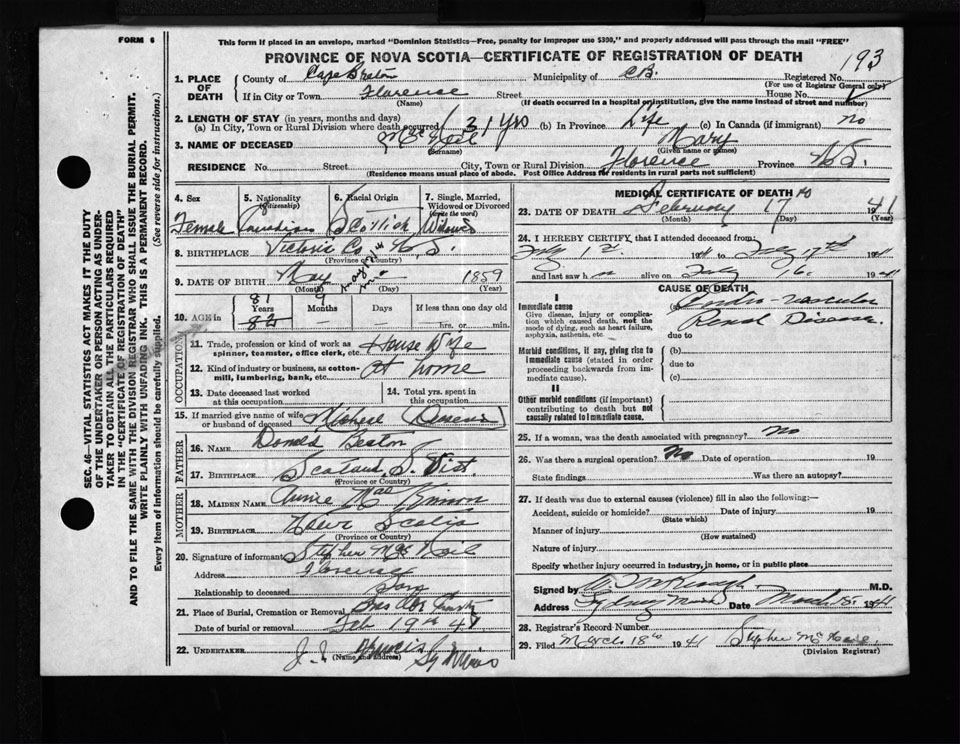 FORM 6
This form if placed in an envelope, marked "Dominion Statistics—Free, penalty for improper use $300," and properly addressed will pass through the mail "FREE"
PROVINCE OF NOVA SCOTIA—CERTIFICATE OF REGISTRATION OF DEATH
193
1. PLACE OF DEATH
County of Cape Breton Municipality of C.B. Registered No.
(For use of Registrar General only)
If in City or Town Florence Street House No.
(Name) (If death occurred in a hospital or institution, give the name instead of street and number)
2. LENGTH OF STAY (in years, months and days)
(a) In City, Town or Rural Division where death occurred 31 yrs (b) In Province Life (c) In Canada (if immigrant) no
3. NAME OF DECEASED McNeil Mary
(Surname) (Given name or names)
RESIDENCE No. Street City, Town or Rural Division Florence Province N.S.
(Residence means usual place of abode. Post Office Address for residents in rural parts not sufficient)
4. Sex 5. Nationality (Citizenship) 6. Racial Origin 7. Single, Married, Widowed or Divorced (write the word)
Female Canadian Scottish Widowed
8. BIRTHPLACE Victoria Co. N.S.
(Province or Country)
9. DATE OF BIRTH May 1859
(Month) (Day) (Year)
10. AGE in 81 9
Years Months Days If less than one day old
hrs. or min.
OCCUPATION
11. Trade, profession or kind of work as spinner, teamster, office clerk, etc. House Wife
12. Kind of industry or business, as cotton-mill, lumbering, bank, etc. At home
13. Date deceased last worked at this occupation 14. Total yrs. spent in this occupation
15. If married give name of wife or husband of deceased Michael
FATHER
16. NAME Donald Beaton
17. BIRTHPLACE
(Province or Country)
MOTHER
18. MAIDEN NAME Annie MacKinnon
19. BIRTHPLACE Nova Scotia
(Province or Country)
20. Signature of informant Stephen McNeil
Address Florence
Relationship to deceased Son
21. Place of Burial, Cremation or Removal
Date of burial or removal Feb 19th 41
22. UNDERTAKER J.J.
(Name and address)
MEDICAL CERTIFICATE OF DEATH
23. DATE OF DEATH February 17 1941
(Month) (Day)
24. I HEREBY CERTIFY, that I attended deceased from
and last saw h alive on 1941
CAUSE OF DEATH
I
Immediate cause
Give disease, injury or complication which caused death, not the mode of dying, such as heart failure, asphyxia, asthenia, etc
(a) Cardio-vascular
Renal Disease
due to
Morbid conditions, if any, giving rise to immediate cause (stated in order proceeding backwards from immediate cause).
(b)
due to
(c)
II
Other morbid conditions (if important) contributing to death but not causally related to immediate cause.
25. If a woman, was the death associated with pregnancy? No
26. Was there a surgical operation? No Date of operation 19
State findings Was there an autopsy?
27. If death was due to external causes (violence) fill in also the following:—
Accident, suicide or homicide? Date of injury 19
(State which)
Manner of injury
(How sustained)
Nature of injury
Specify whether injury occurred in industry, in home, or in public place
Signed by M.D.
Address Sydney Mines Date March 1941
28. Registrar's Record Number
29. Filed March 18th 1941 Stephen McNeil
(Division Registrar)
SEC. 46—VITAL STATISTICS ACT MAKES IT THE DUTY
OF THE UNDERTAKER OR PERSON ACTING AS UNDER-
TAKER TO OBTAIN ALL THE PARTICULARS REQUIRED
IN THE "CERTIFICATE OF REGISTRATION OF DEATH"
AND TO FILE THE SAME WITH THE DIVISION REGISTRAR WHO SHALL ISSUE THE BURIAL PERMIT.
WRITE PLAINLY WITH UNFADING INK. THIS IS A PERMANENT RECORD.
Every item of information should be carefully supplied. (See reverse side for instructions.)